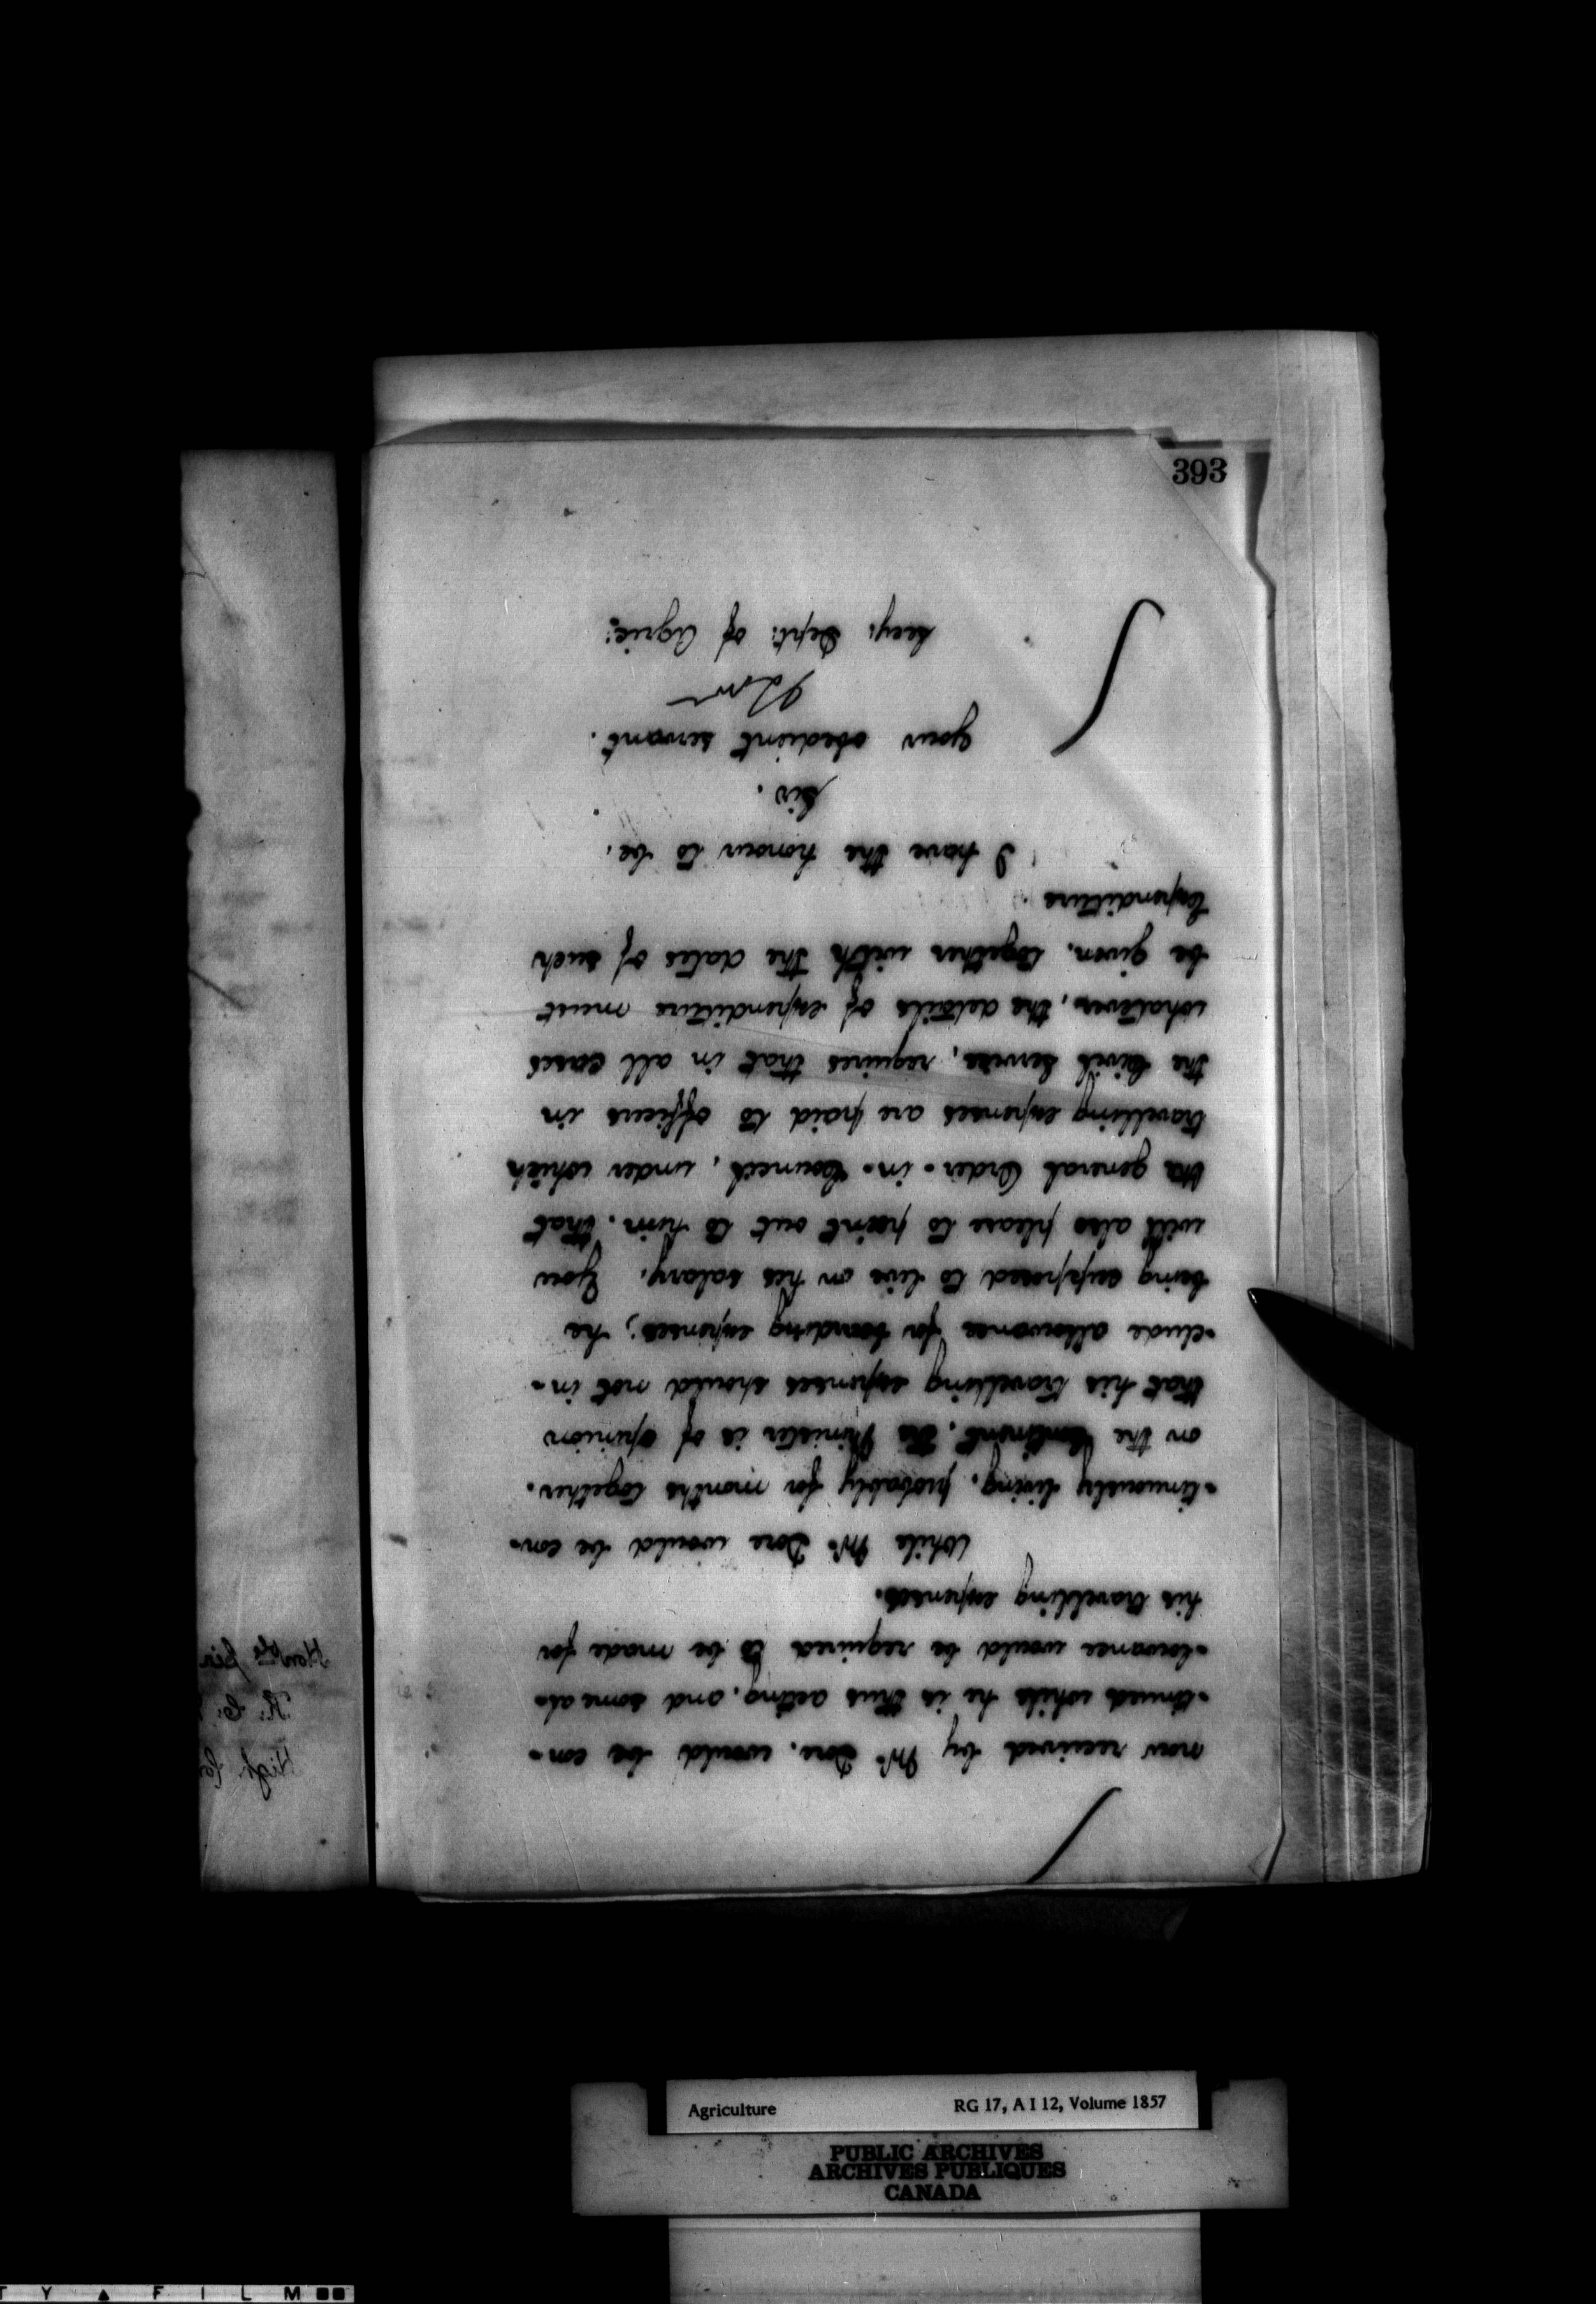 393
now received by Mr. Dore, would be con-
-tinued while he is thus acting, and some al-
-lowance would be required to be made for
his travelling expenses.
While Mr. Dore would be con-
-tinuously living, probably for months together,
on the Continent, the Minister is of opinion
that his travelling expenses should not in-
-clude allowance for boarding expenses; he
being supposed to live on his salary. You
will also please to point out to him, that
the general Order-in-Council, under which
travelling expenses are paid to officers in
the Civil Service, requires that in all cases
whatever, the details of expenditure must
be given, together with the dates of such
Expenditure.
I have the honour to be,
Sir,
your obedient servant.
Secy. Dept. of Agric:
Honble Sir
High Co
Agriculture RG 17, A I 12, Volume 1857
PUBLIC ARCHIVES
ARCHIVES PUBLIQUES
CANADA
T Y ▲ F I L M